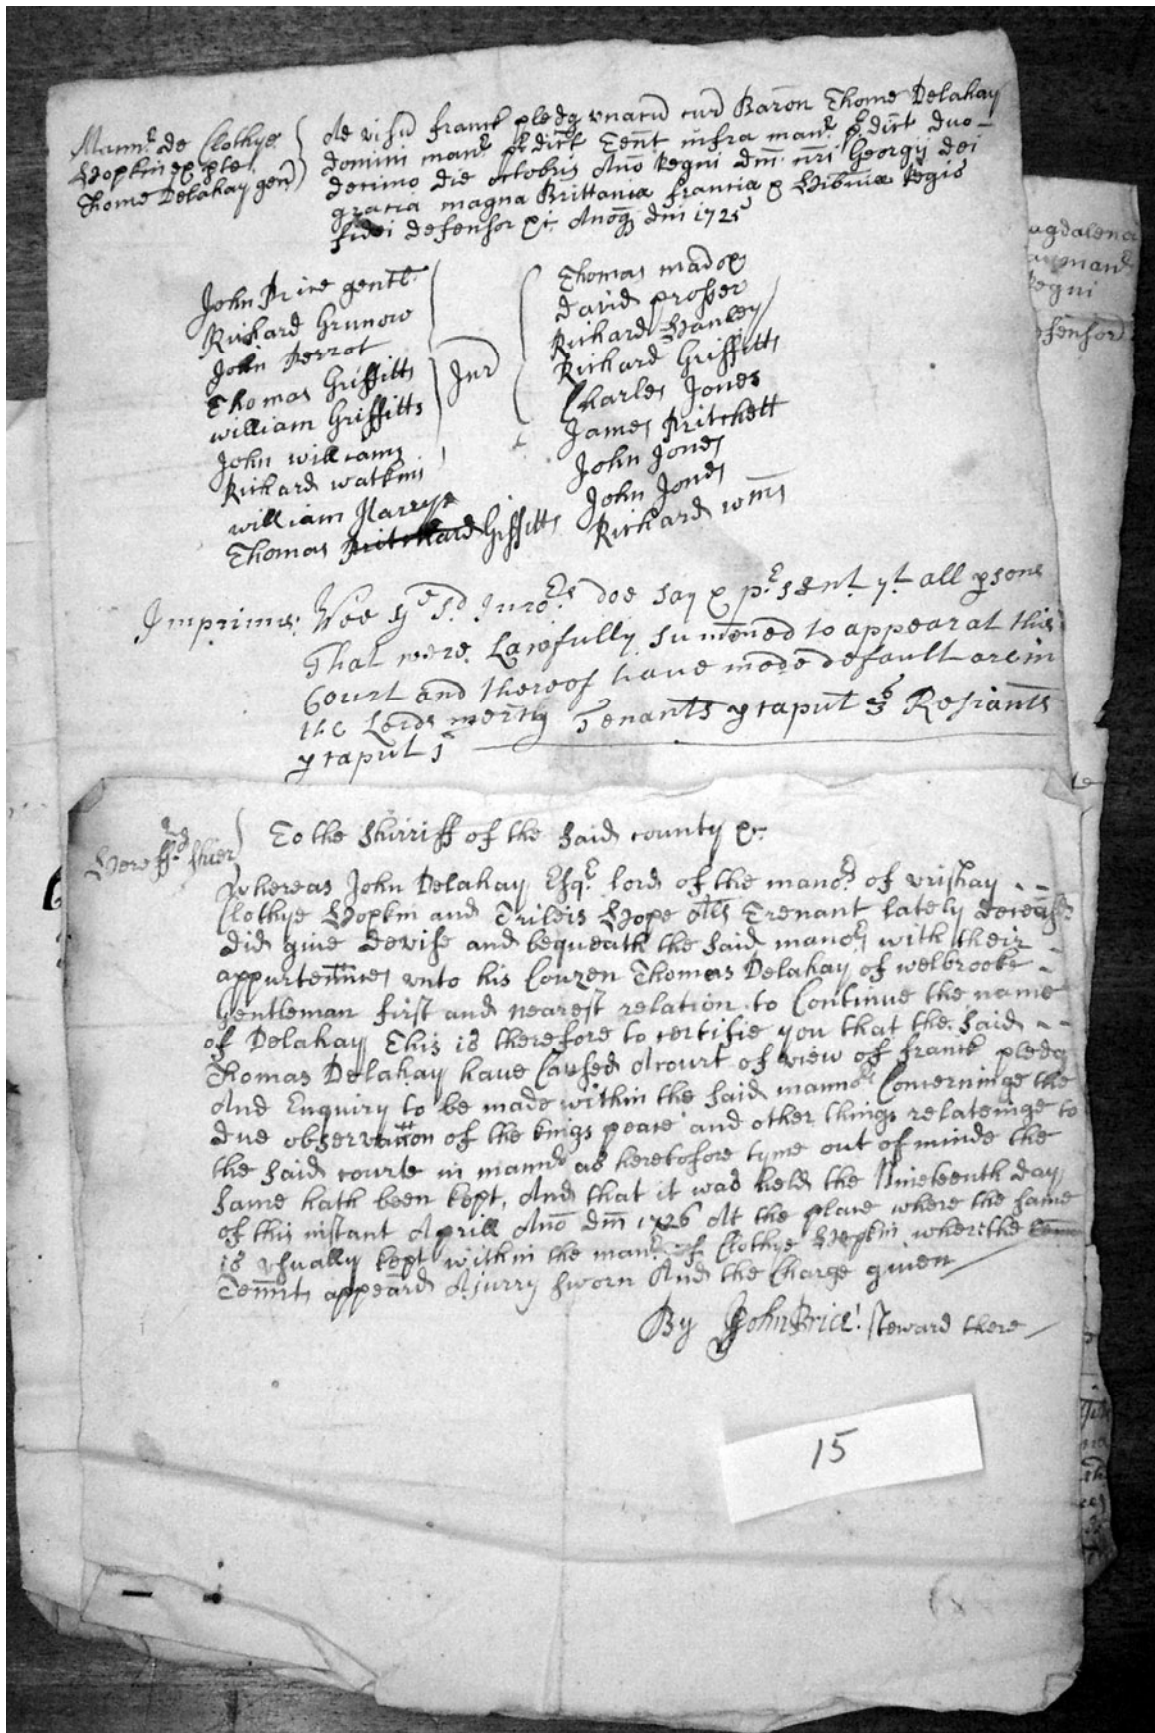 Mannr. de Clothye
Hopkin ex ple
Thome Delahay gen
Ad visu franck pledg unacu cur Baron Thome Delahay
domini manr pdict Tent infra manr pdict duo-
decimo die octobris Ano Regni dni nri Georgij dei
gracia magna Brittania francia & Hibnia Regis
fidei defensor &c Anoq dni 1725
John Price gentl.
Richard Grunow
John Perrot
Thomas Griffitts
william Griffitts
John williams
Richard watkins
william Harrys
Thomas Pritchard Griffitts
Jur
Thomas madox
David prosser
Richard Hanley
Richard Griffitts
Charles Jones
James Pritchett
John Jones
John Jones
Richard wms
Imprimis: Wee ye sd Jurors doe say & present yt all psons
That were Lawfully sumoned to appear at this
Court and thereof have made default are in
the Lords mercy Tenants p caput 6 Resiants
p caput
To the Shirriff of the said county &c.
Whereas John Delahay Esqr lord of the manors of urishay
Clothye Hopkin and Trileis Hope als Trenant lately deceased
did give devise and bequeath the said manors with their
appurtennces unto his Couzen Thomas Delahay of welbrooke
Gentleman first and nearest relation to Continue the name
of Delahay This is therefore to certifie you that the said
Thomas Delahay have Caused A court of view of franck pledg
And Enquiry to be made within the said mannors Concerninge the
due observation of the kings peace and other things relateinge to
the said courte in manner as heretofore tyme out of minde the
same hath been kept, And that it was held the Nineteenth day
of this instant Aprill Ano Dm 1726 At the place where the same
is usually kept within the manr of Clothye Hopkin where the
Tennts appeard A jurry sworn And the Charge given
By John Price! Steward there
15
agdalena
Regni